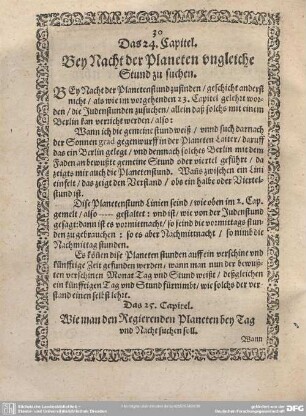 30
Das 24. Capitel.
Bey Nacht der Planeten vngleiche
Stund zu suchen.
BEy Nacht der Planetenstund zufinden / geschicht anderst
nicht / als wie im vorgehenden 23. Capitel gelehrt wor-
den / die Judenstunden zusuchen / allein daß solchs mit einem
Berlin kan verricht werden / also:
Wann ich die gemeine stund weiß / vnnd such darnach
der Sonnen grad gegenwurff in der Planeten Latern / darauff
das ein Berlin gelege / vnd demnach solches Berlin mit dem
Faden an bewußte gemeine Stund oder viertel geführt / da
zeigts mit auch die Planetenstund. Wañs zwischen ein Lini
einfelt / das zeigt den Verstand / obs ein halbe oder Viertel-
stund ist.
Dise Planetenstund Linien seind / wie oben im 2. Cap.
gemelt / also gestaltet: vnd ist / wie von der Judenstund
gesagt: dann ist es vormittnacht / so seind die vormittags stun-
den zu gebrauchen: so es aber Nachmittnacht / so nimb die
Nachmittag stunden.
Es köñen dise Planeten stunden auff ein verschine vnd
künfftige Zeit gefunden werden / wann man nur der bewuß-
ten verschinen Monat Tag vnd Stund weißt / deßgleichen
ein künfftigen Tag vnd Stund fürnimbt / wie solchs der ver-
stand einen selbst lehrt.
Das 25. Capitel.
Wie man den Regierenden Planeten bey Tag
vnd Nacht suchen soll.
Wann